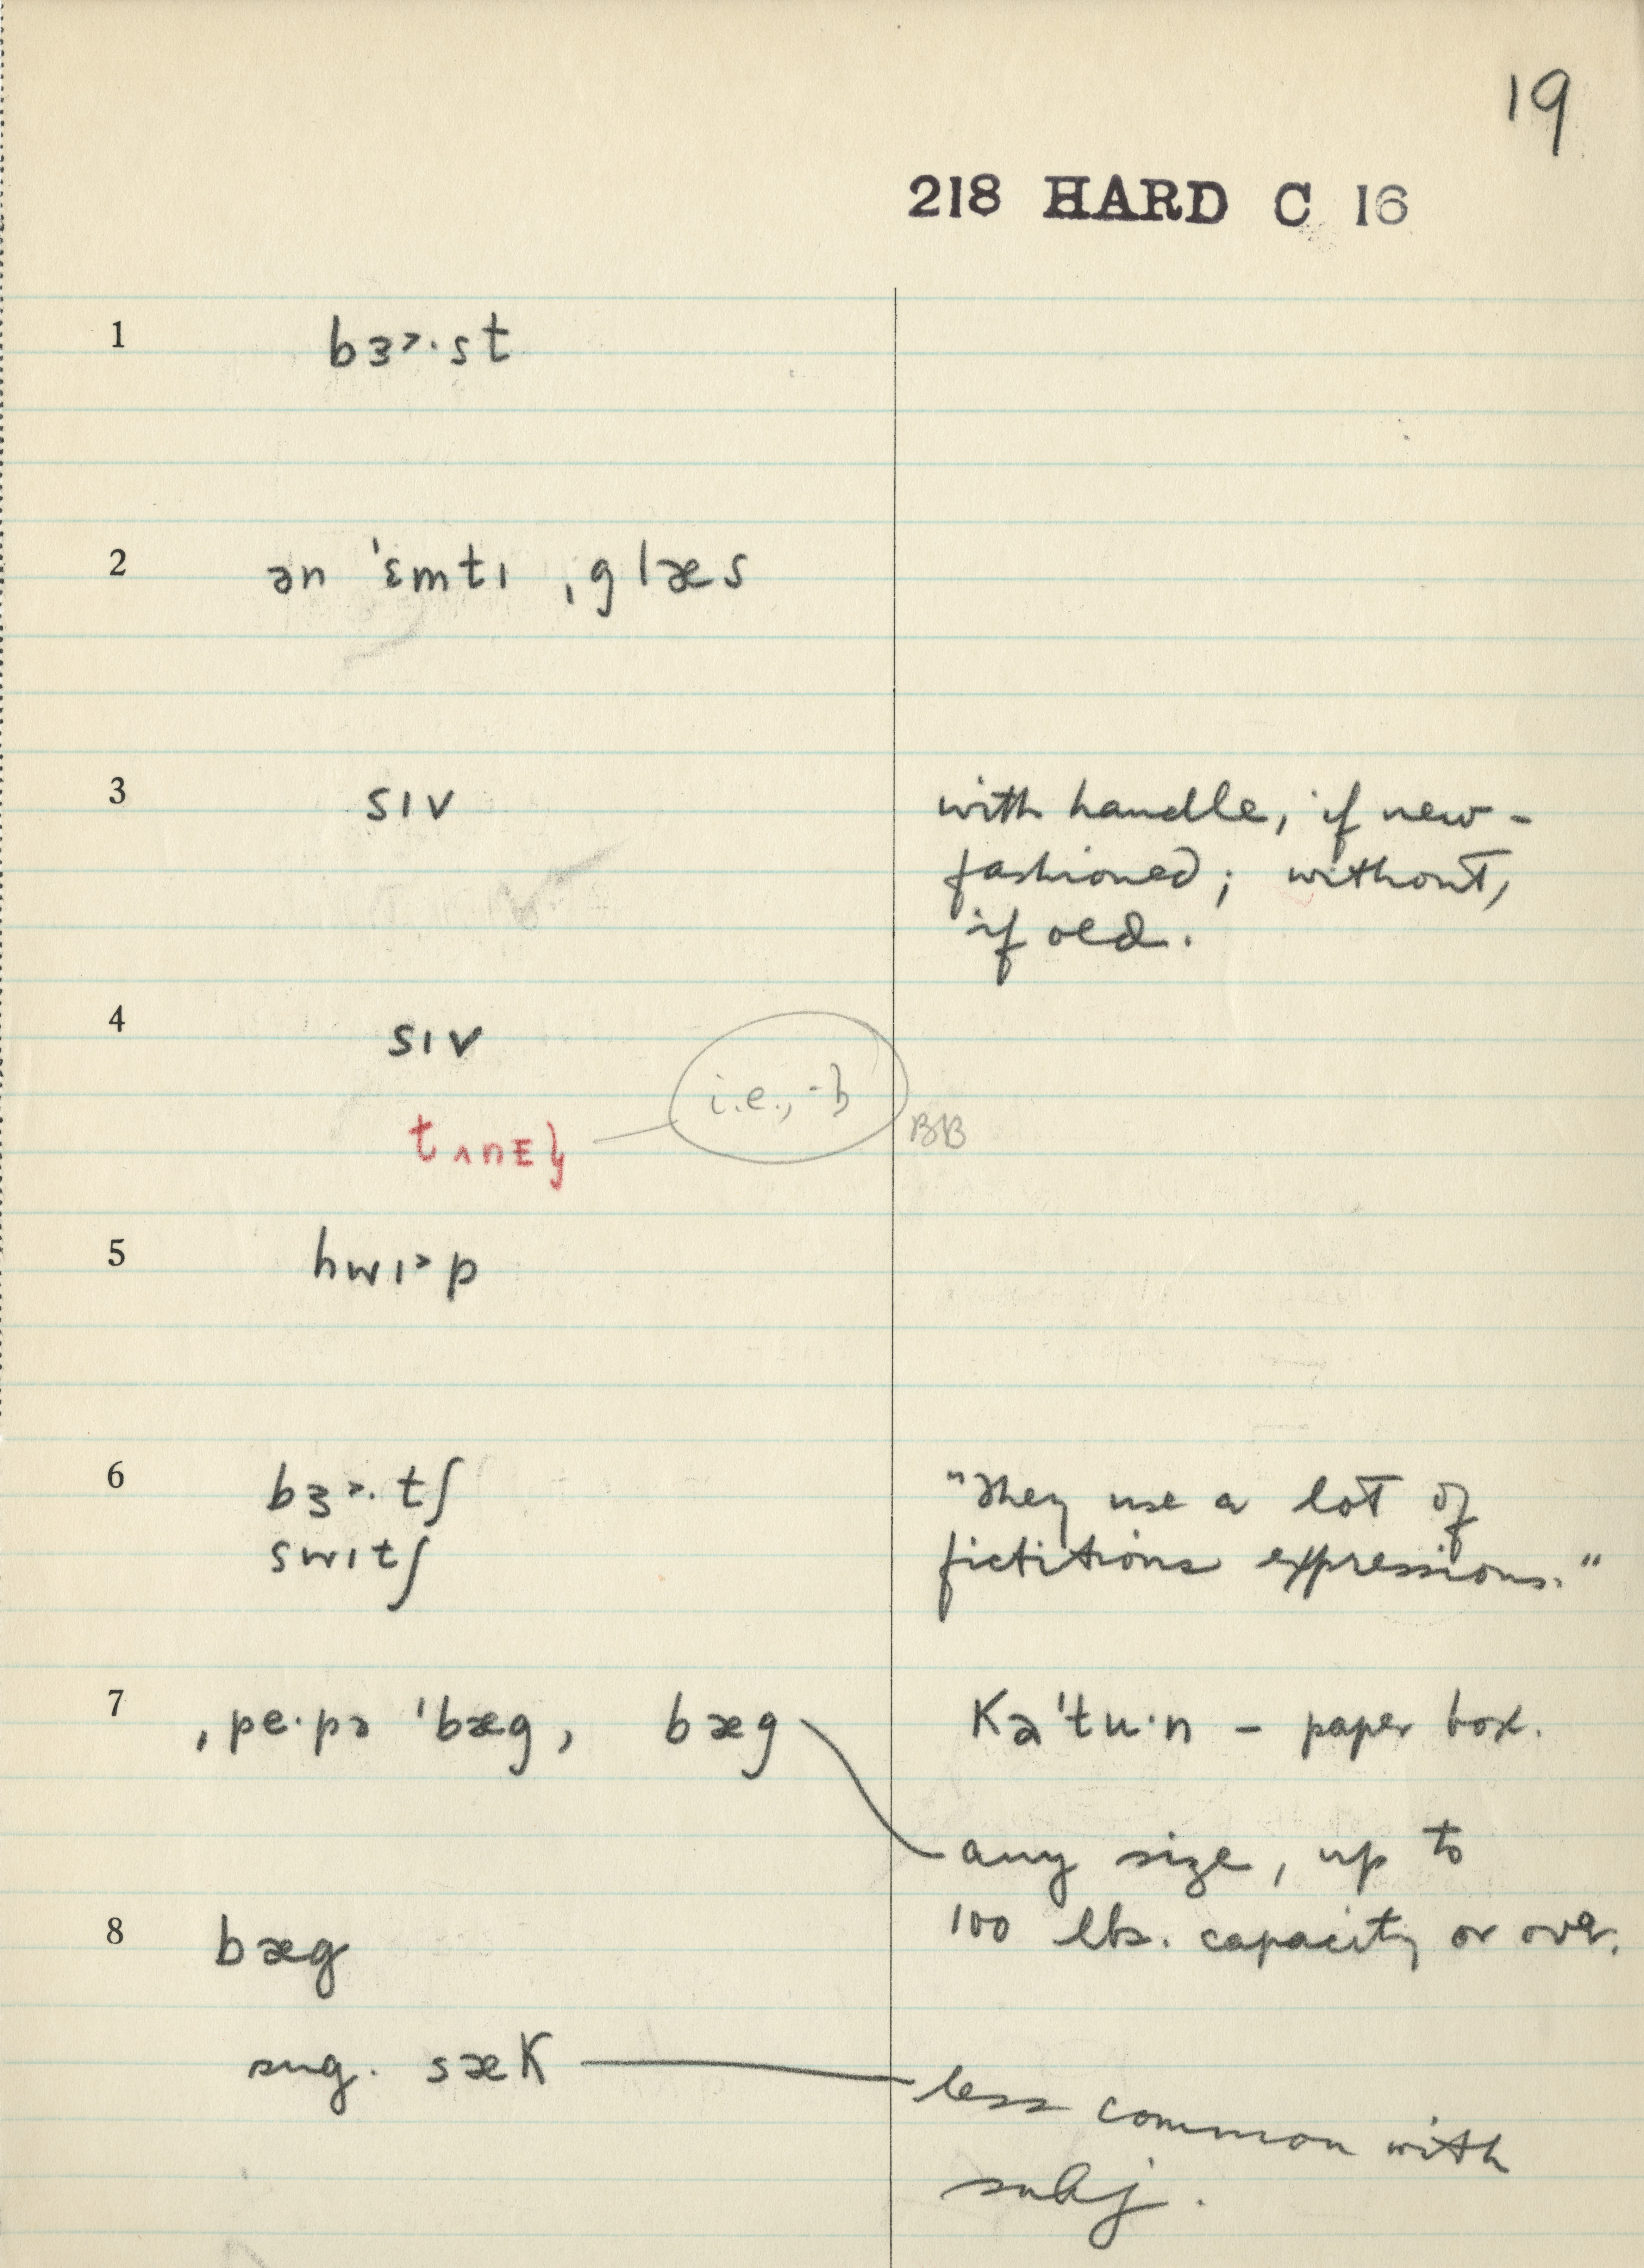 19
218 HARD C 16
1 bɜ˃·st
2 ən ˈɛmtɪ ˌglæs
3 sɪv with handle, if new-
fashioned; without,
if old.
4 sɪv
i.e., -ɫ
tʌnEɫ BB
5 hwɪ˃p
6 bɜ˃·tʃ "They use a lot of
swɪtʃ fictitious expressions."
7 ˌpe·pə ˈbæg, bæg Kəˈtu·n – paper box.
any size, up to
100 lbs. capacity or over.
8 bæg
sug. sæK less common with
subj.